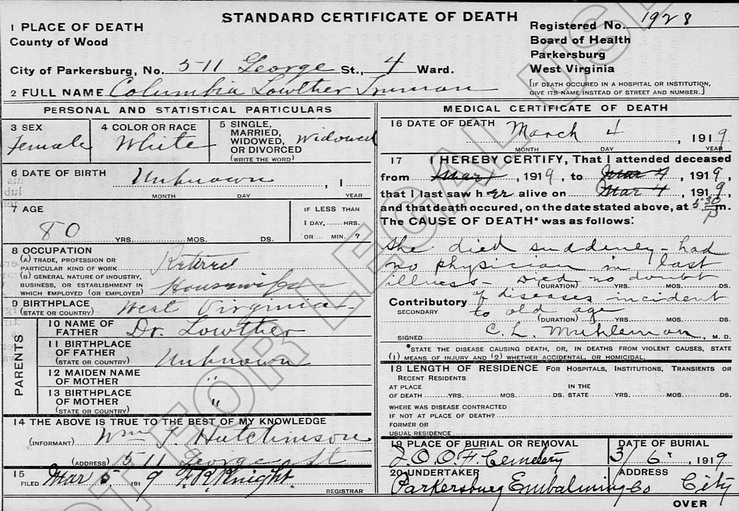 STANDARD CERTIFICATE OF DEATH
Registered No. 1928
1 PLACE OF DEATH
County of Wood
Board of Health
Parkersburg
West Virginia
City of Parkersburg, No. 511 George St., 4 Ward.
2 FULL NAME Columbia Lowther Inman
[IF DEATH OCCURED IN A HOSPITAL OR INSTITUTION, GIVE ITS NAME INSTEAD OF STREET AND NUMBER.]
PERSONAL AND STATISTICAL PARTICULARS
3 SEX
Female
4 COLOR OR RACE
White
5 SINGLE, MARRIED, WIDOWED, OR DIVORCED (WRITE THE WORD)
Widowed
6 DATE OF BIRTH
Unknown , 1
MONTH DAY YEAR
7 AGE
80 YRS. MOS. DS.
IF LESS THAN
1 DAY, HRS.
OR MIN. ?
8 OCCUPATION
(A) TRADE, PROFESSION OR PARTICULAR KIND OF WORK
(B) GENERAL NATURE OF INDUSTRY, BUSINESS, OR ESTABLISHMENT IN WHICH EMPLOYED (OR EMPLOYER)
Retired
Housewife
9 BIRTHPLACE
(STATE OR COUNTRY)
West Virginia
PARENTS
10 NAME OF FATHER
Dr. Lowther
11 BIRTHPLACE OF FATHER
(STATE OR COUNTRY)
Unknown
12 MAIDEN NAME OF MOTHER
"
13 BIRTHPLACE OF MOTHER
(STATE OR COUNTRY)
"
14 THE ABOVE IS TRUE TO THE BEST OF MY KNOWLEDGE
(INFORMANT) Wm F. Hutchinson
(ADDRESS) 511 George St
15
FILED Mar 5, 1919 F.R. Knight
REGISTRAR
MEDICAL CERTIFICATE OF DEATH
16 DATE OF DEATH
March 4 , 1919
MONTH DAY YEAR
17 I HEREBY CERTIFY, That I attended deceased
from Mar 1 , 1919, to Mar 4 , 1919,
that I last saw her alive on Mar 4 , 1919
and that death occurred, on the date stated above, at 5:30 P m.
The CAUSE OF DEATH* was as follows:
She died suddenly - had
no physician in last
illness. Died no doubt
(DURATION) YRS. MOS. DS.
of diseases incident
Contributory to old age
SECONDARY
(DURATION) YRS. MOS. DS.
SIGNED C. L. Muhleman, M. D.
*STATE THE DISEASE CAUSING DEATH, OR, IN DEATHS FROM VIOLENT CAUSES, STATE (1) MEANS OF INJURY AND (2) WHETHER ACCIDENTAL, OR HOMICIDAL.
18 LENGTH OF RESIDENCE FOR HOSPITALS, INSTITUTIONS, TRANSIENTS OR RECENT RESIDENTS
AT PLACE IN THE
OF DEATH YRS. MOS. DS. STATE YRS. MOS. DS.
WHERE WAS DISEASE CONTRACTED
IF NOT AT PLACE OF DEATH?
FORMER OR
USUAL RESIDENCE
19 PLACE OF BURIAL OR REMOVAL
I.O.O.F. Cemetery
DATE OF BURIAL
3/6 , 1919
20 UNDERTAKER
Parkersburg Embalming Co
ADDRESS
City
OVER